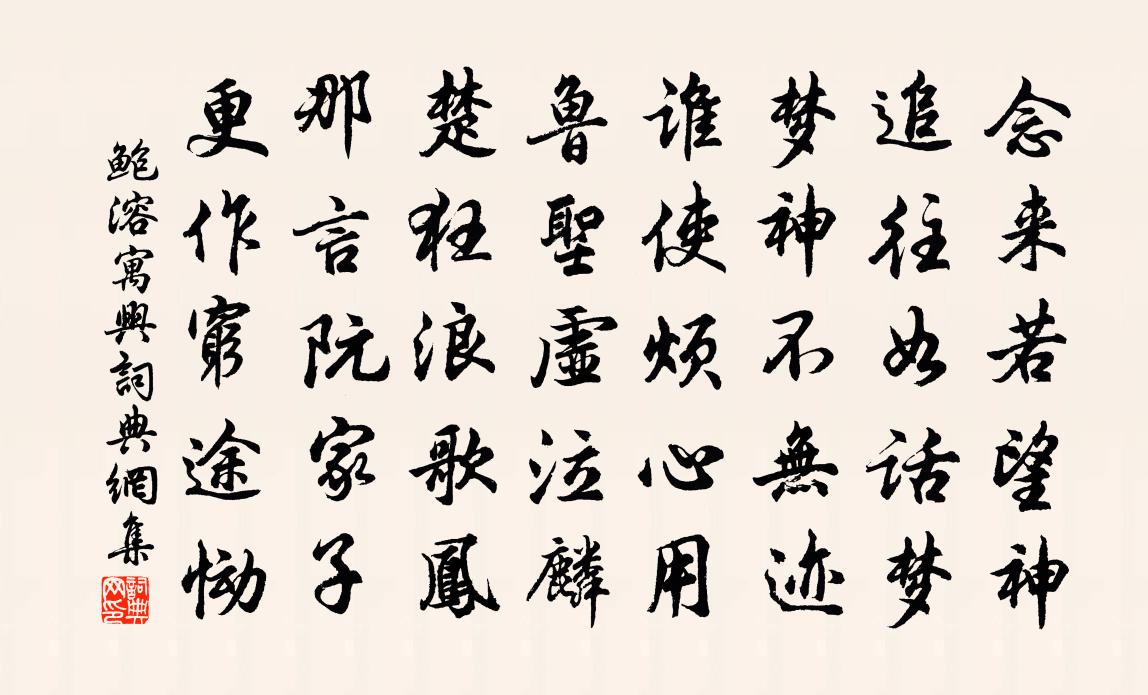 念来若望神
追往如话梦
梦神不無迹
谁使烦心用
魯聖虛泣麟
楚狂浪歌鳳
那言阮家子
更作窮途恸
鲍溶寓興詞典網集
詞典网印